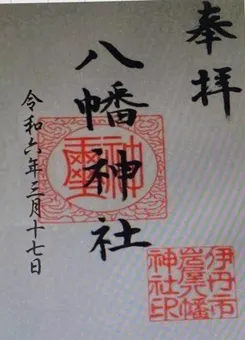 奉拝
八幡神社
令和六年三月十七日
伊丹市
神社印